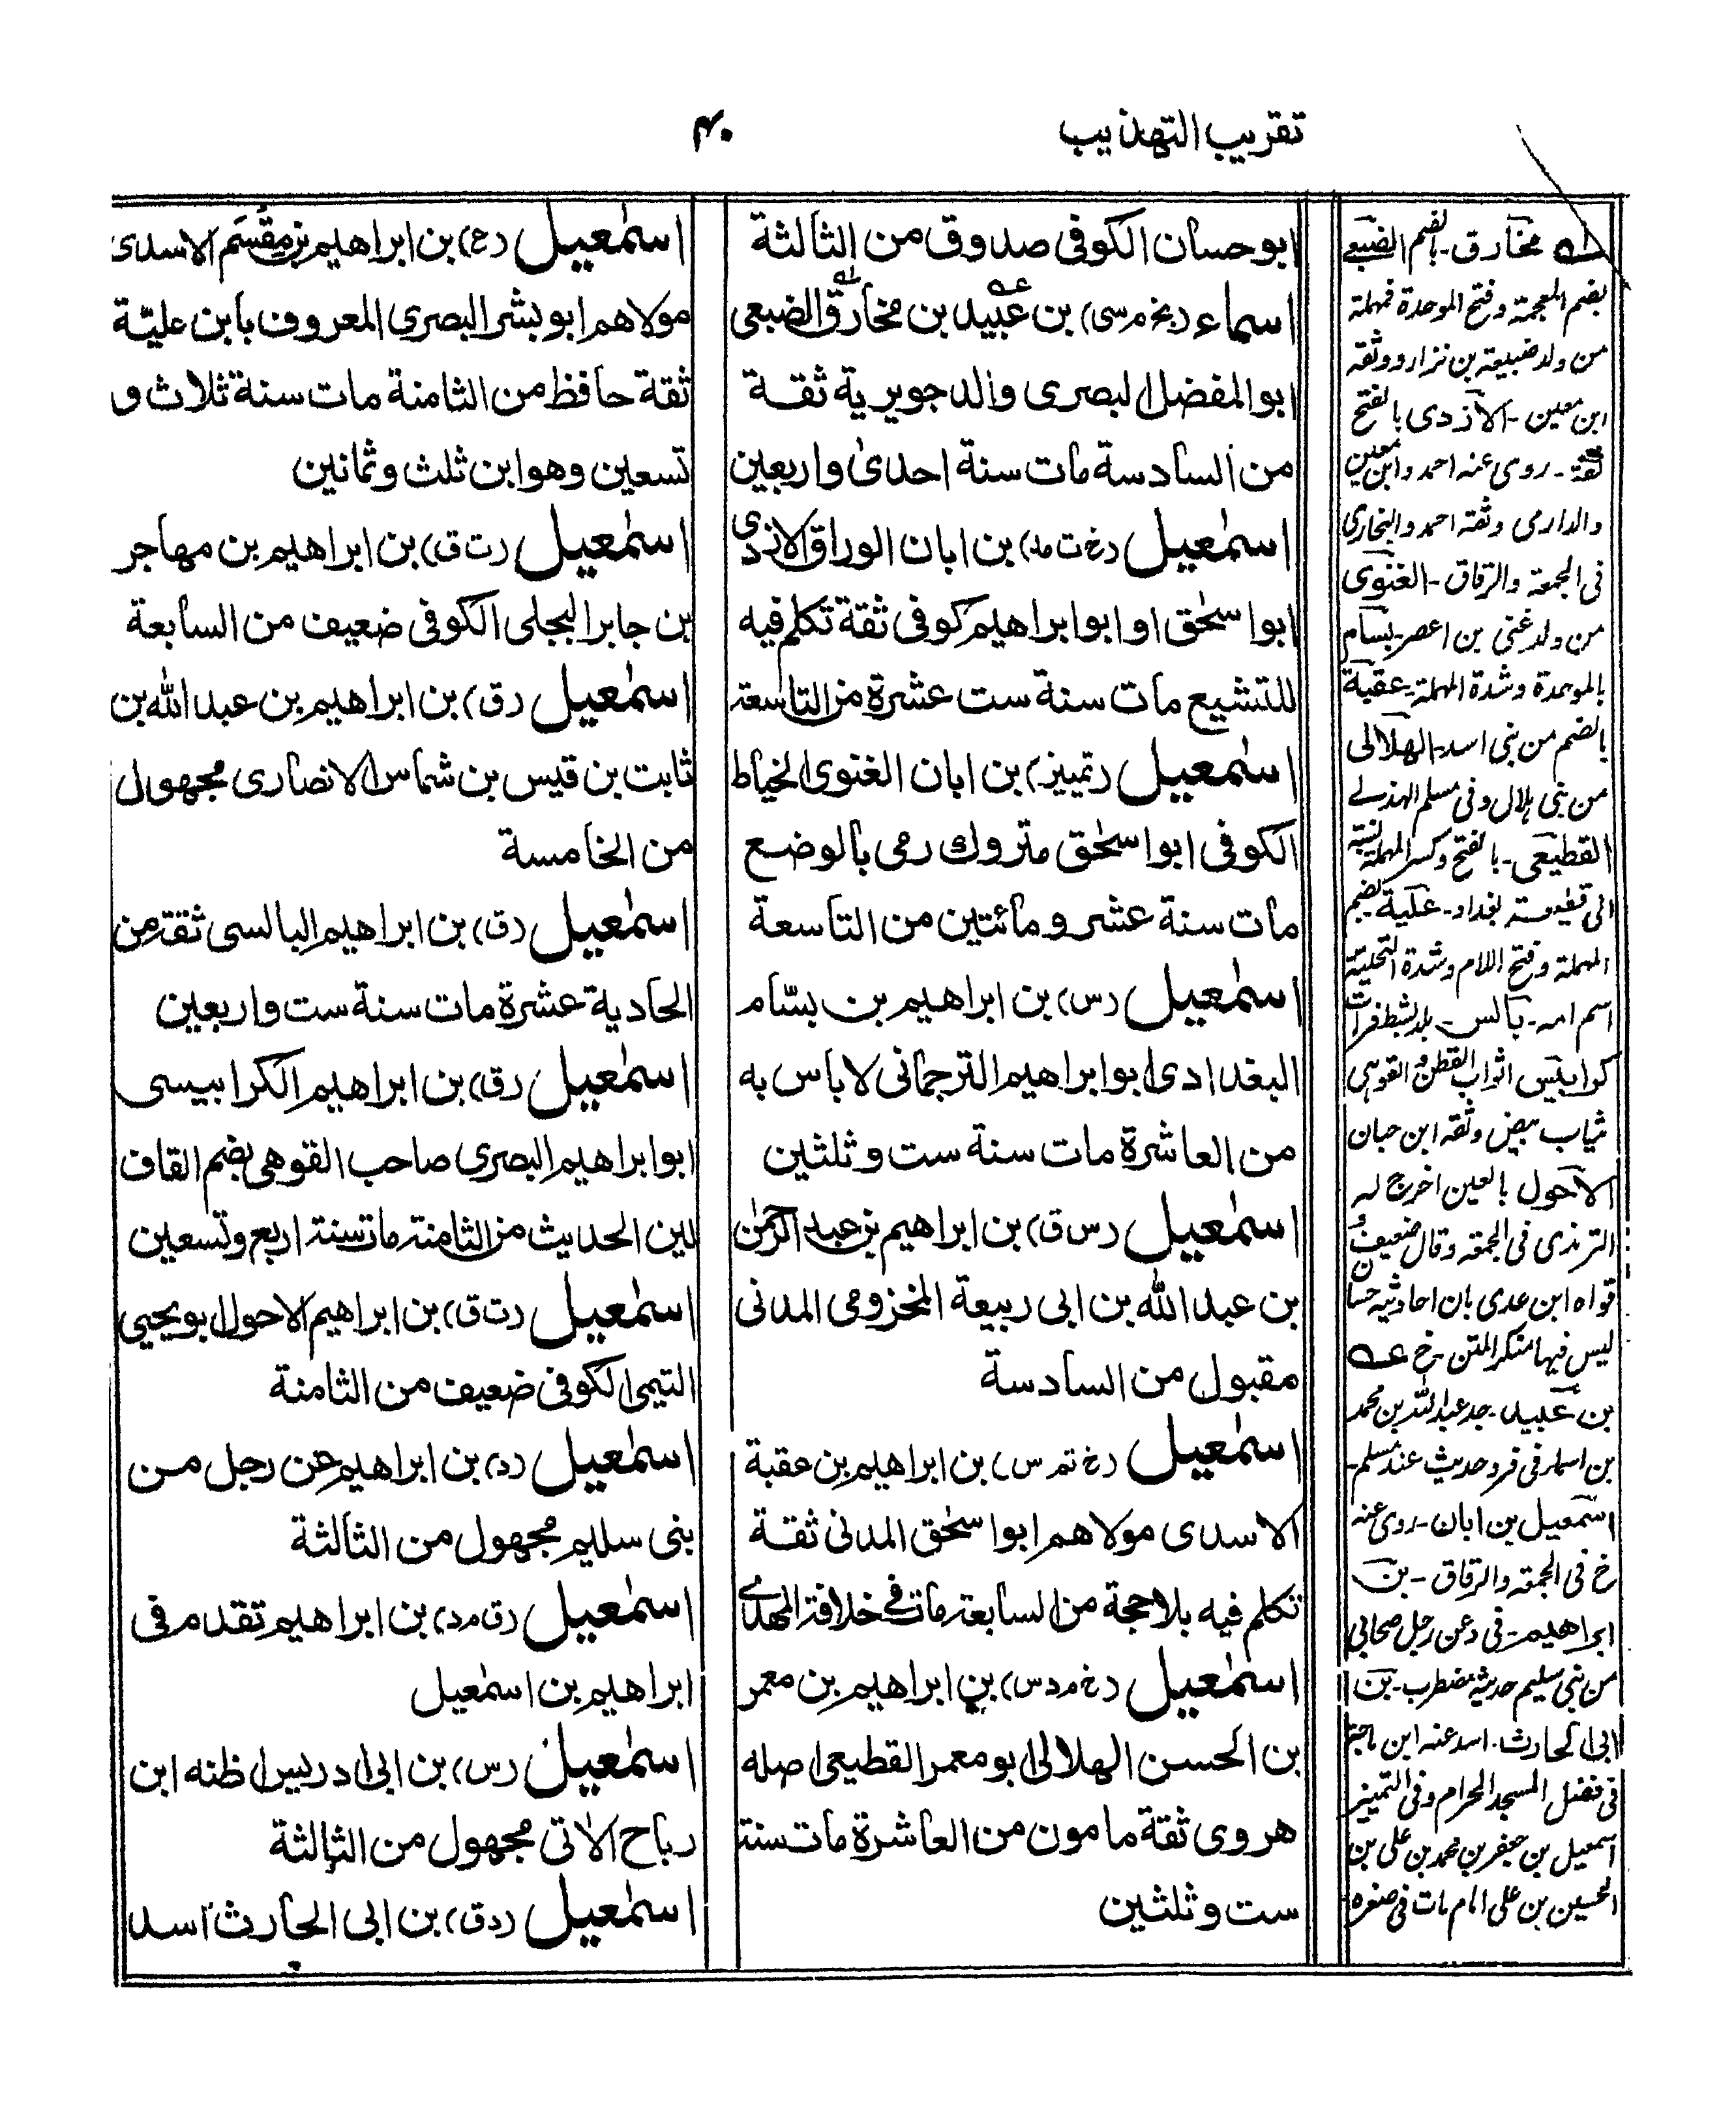 تقريب التهذيب
۴۰
ابو حسان الكوفى صدوق من الثالثة
اسماء (بخ م سى) بن عبيد بن مخارق الضبعى
ابو المفضل البصرى والد جويرية ثقة
من السادسة مات سنة احدىٰ واربعين
اسمٰعيل (خ ت مد) بن ابان الوراق الازدى
ابو اسحٰق او ابو ابراهيم كوفى ثقة تكلم فيه
للتشيع مات سنة ست عشرة من التاسعة
اسمٰعيل (تمييز) بن ابان الغنوى الخياط
الكوفى ابو اسحٰق متروك رمى بالوضع
مات سنة عشر و مائتين من التاسعة
اسمٰعيل (س) بن ابراهيم بن بسّام
البغدادى ابو ابراهيم الترجمانى لا باس به
من العاشرة مات سنة ست و ثلثين
اسمٰعيل (س ق) بن ابراهيم بن عبد الرحمٰن
بن عبد الله بن ابى ربيعة المخزومى المدنى
مقبول من السادسة
اسمٰعيل (خ تم س) بن ابراهيم بن عقبة
الاسدى مولاهم ابو اسحٰق المدنى ثقة
تكلم فيه بلا حجة من السابعة مات فى خلافة المهدى
اسمٰعيل (خ م د س) بن ابراهيم بن معمر
بن الحسن الهلالى ابو معمر القطيعى اصله
هروى ثقة مامون من العاشرة مات سنة
ست و ثلثين
اسمٰعيل (ع) بن ابراهيم بن مِقْسَم الاسدى
مولاهم ابو بشر البصرى المعروف بابن عليّة
ثقة حافظ من الثامنة مات سنة ثلاث و
تسعين وهو ابن ثلث وثمانين
اسمٰعيل (ت ق) بن ابراهيم بن مهاجر
بن جابر البجلى الكوفى ضعيف من السابعة
اسمٰعيل (ق) بن ابراهيم بن عبد الله بن
ثابت بن قيس بن شماس الانصارى مجهول
من الخامسة
اسمٰعيل (ق) بن ابراهيم البالسى ثقة من
الحادية عشرة مات سنة ست واربعين
اسمٰعيل (ق) بن ابراهيم الكرابيسى
ابو ابراهيم البصرى صاحب القوهى بضم القاف
لين الحديث من الثامنة مات سنة اربع وتسعين
اسمٰعيل (ت ق) بن ابراهيم الاحول ابو يحيى
التيمى الكوفى ضعيف من الثامنة
اسمٰعيل (د) بن ابراهيم عن رجل من
بنى سليم مجهول من الثالثة
اسمٰعيل (ق مد) بن ابراهيم تقدم فى
ابراهيم بن اسمٰعيل
اسمٰعيل (س) بن ابى ادريس اظنه ابن
رباح الاٰتى مجهول من الثالثة
اسمٰعيل (د ق) بن ابى الحارث اسد
له مخارق - بالضم الضبعى
بضم المعجمة وفتح الموحدة فمهملة
من ولد ضبيعة بن نزار ووثقه
ابن معين - الازدى بالفتح
ثقة - روى عنه احمد وابن معين
والدارمى وثقه احمد والبخارى
فى الجمعة والرقاق - الغنوى
من ولد غنى بن اعصر - بسام
بالموحدة وشدة المهملة - عقبة
بالضم من بنى اسد - الهلالى
من بنى هلال وفى مسلم الهذلى
القطيعى - بالفتح وكسر المهملة نسبة
الى قطيعة بغداد - علية بضم
المهملة وفتح اللام وشدة التحتية
اسم امه - بالس - بلد بشط فرات
كرابيس اثواب القطن و القوهى
ثياب بيض وثقه ابن حبان
الاحول بالعين اخرج له
الترمذى فى الجمعة وقال ضعيف و
قواه ابن عدى بان احاديثه حسان
ليس فيها منكر المتن - خ عه
بن عبيد - جد عبد الله بن محمد
بن اسماء فى فرد حديث عند مسلم -
اسمعيل بن ابان - روى عنه
خ فى الجمعة والرقاق - بن
ابراهيم - فى د عن رجل صحابى
من بنى سليم حديثه مضطرب - بن
ابى الحارث - اسد عنه ابن ماجة
فى فضل المسجد الحرام وفى التمييز
اسمعيل بن جعفر بن محمد بن على بن
الحسين بن على امام مات فى صغره